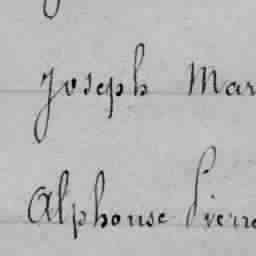 Joseph Mar
Alphonse Pierre